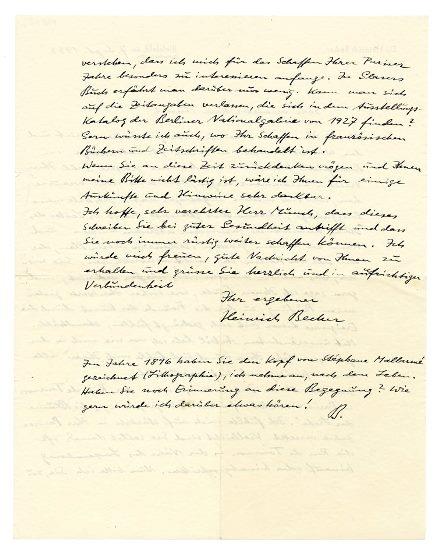 verstehen, dass ich mich für das Schaffen Ihrer Pariser
Jahre besonders zu interessieren anfange. In Glasers
Buch erfährt man darüber nur wenig. Kann man sich
auf die Zeitangaben verlassen, die sich in dem Ausstellungs-
katalog der Berliner Nationalgalerie von 1927 finden?
Gern wüsste ich auch, wo Ihr Schaffen in französischen
Büchern und Zeitschriften behandelt ist.
Wenn Sie an diese Zeit zurückdenken mögen und Ihnen
meine Bitte nicht lästig ist, wäre ich Ihnen für einige
Auskünfte und Hinweise sehr dankbar.
Ich hoffe, sehr verehrter Herr Munch, dass dieses
Schreiben Sie bei guter Gesundheit antrifft und dass
Sie noch immer rüstig weiter schaffen können. Ich
würde mich freuen, gute Nachricht von Ihnen zu
erhalten und grüsse Sie herzlich und in aufrichtiger
Verbundenheit
Ihr ergebener
Heinrich Becker
Im Jahre 1896 haben Sie den Kopf von Stéphane Mallarmé
gezeichnet (Lithographie), ich nehme an, nach dem Leben.
Haben Sie noch Erinnerung an diese Begegnung? Wie
gern würde ich darüber etwas hören!
B.